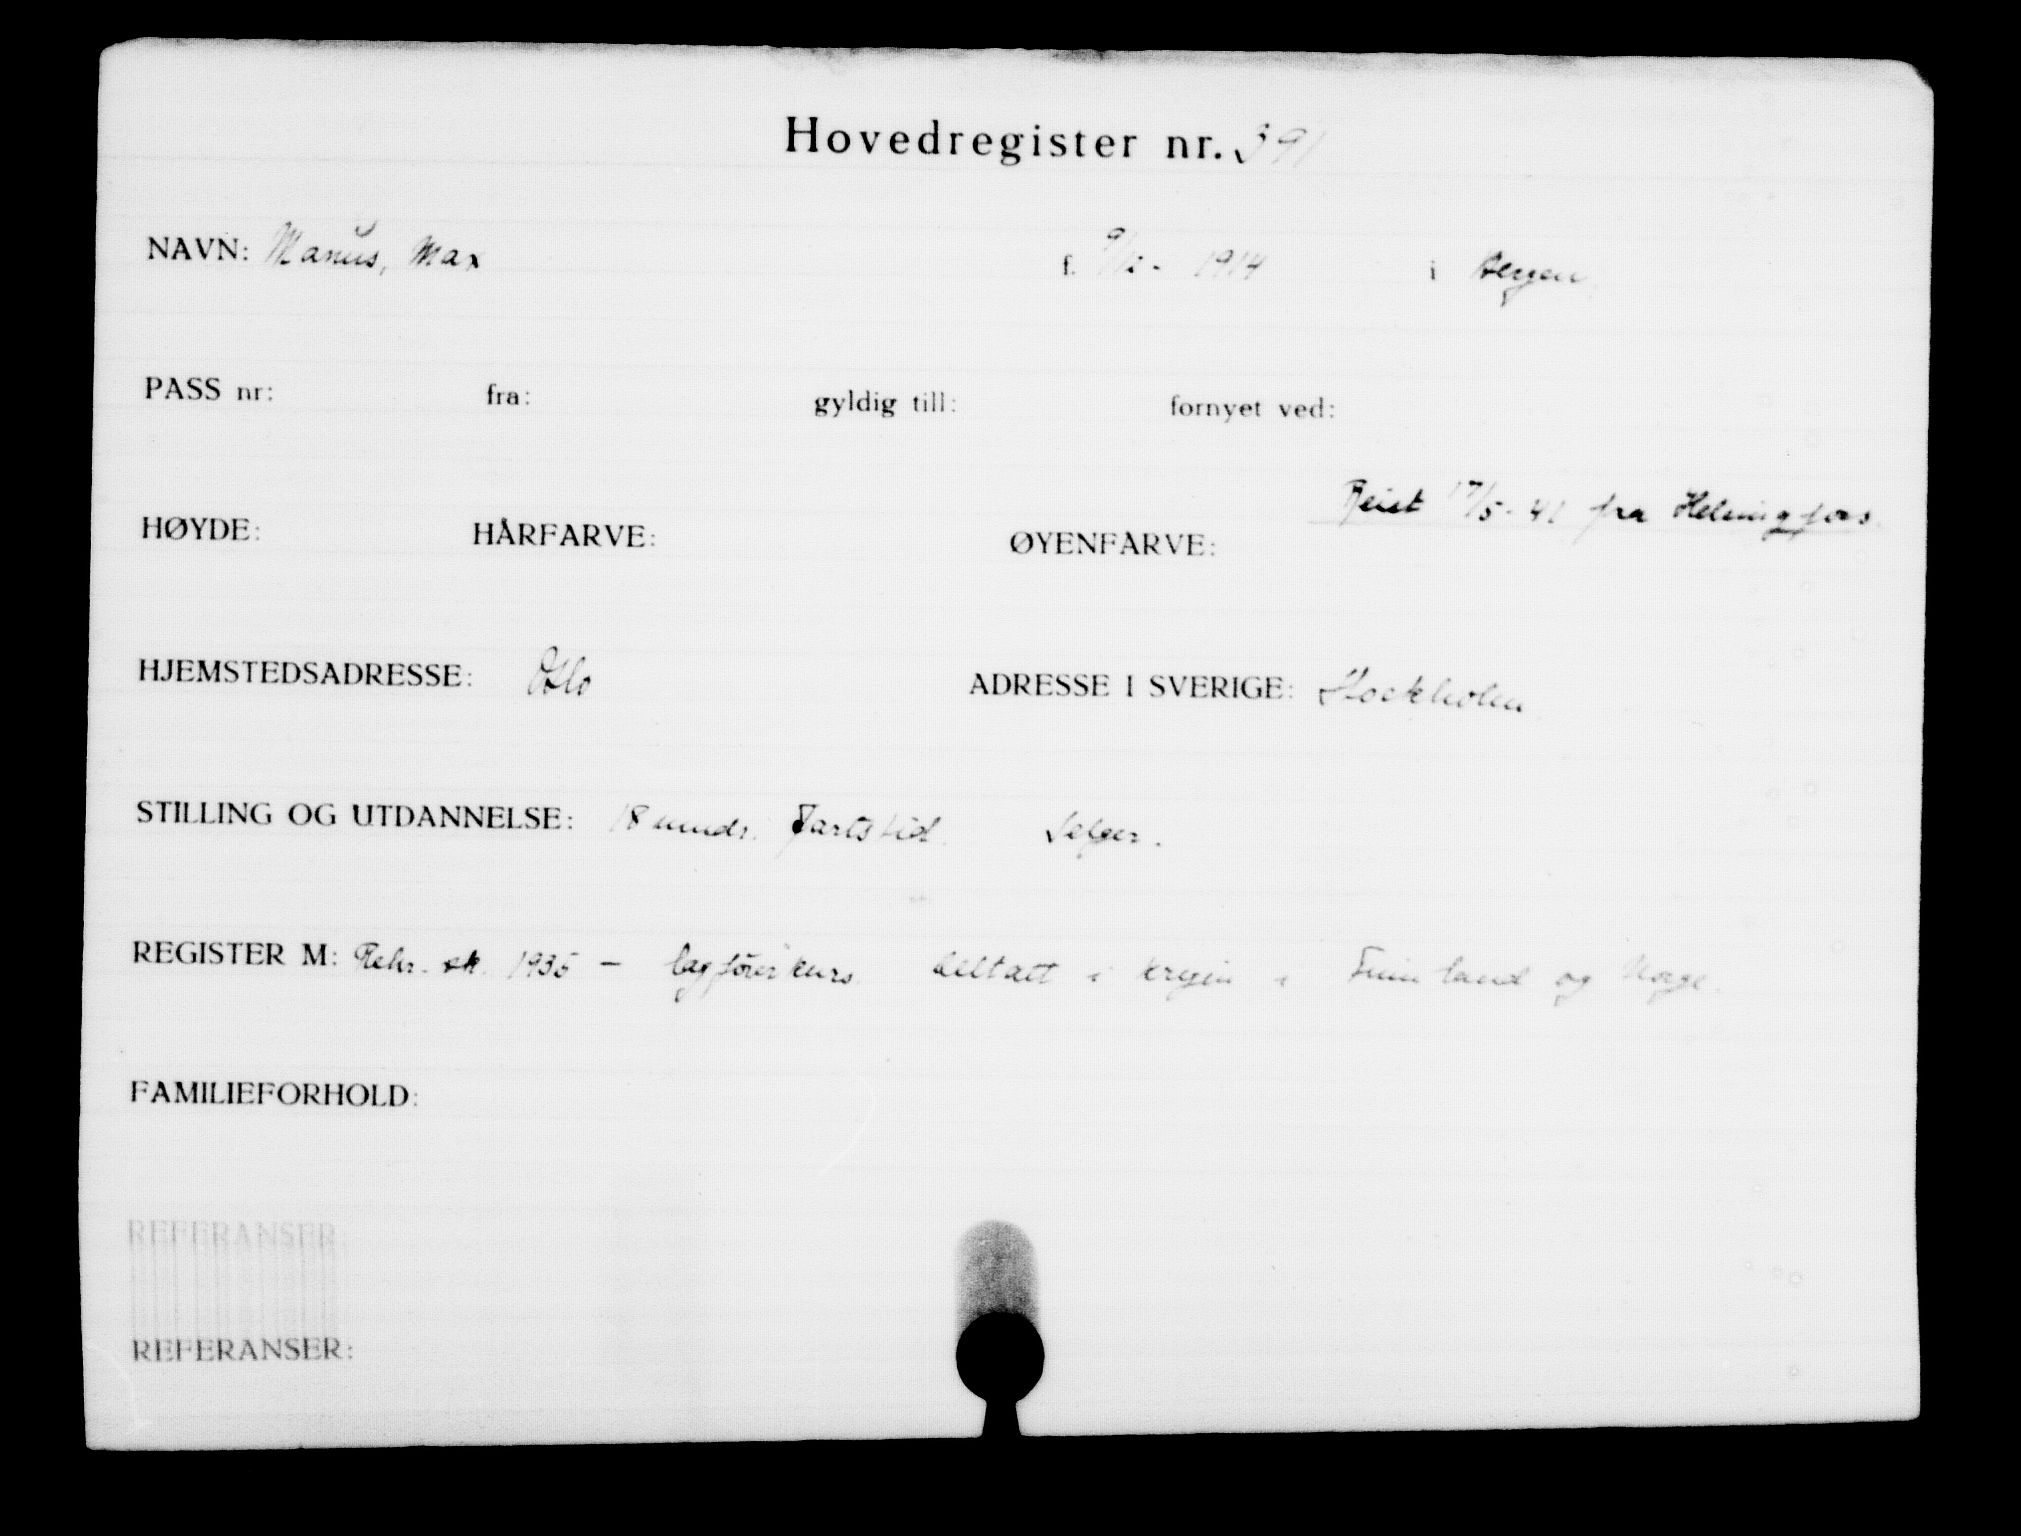 Hovedregister nr. 391
NAVN: Manus, Max f. 9/12 - 1914 i Bergen
PASS nr: fra: gyldig till: fornyet ved:
Reist 17/5 - 41 fra Helsingfors.
HØYDE: HÅRFARVE: ØYENFARVE:
HJEMSTEDSADRESSE: Oslo ADRESSE I SVERIGE: Stockholm
STILLING OG UTDANNELSE: 18 mndr. Fartstid. Selger.
REGISTER M: Rekr. sk. 1935 - lagførerkurs. deltatt i krigen i Finnland og Norge.
FAMILIEFORHOLD:
REFERANSER:
REFERANSER: